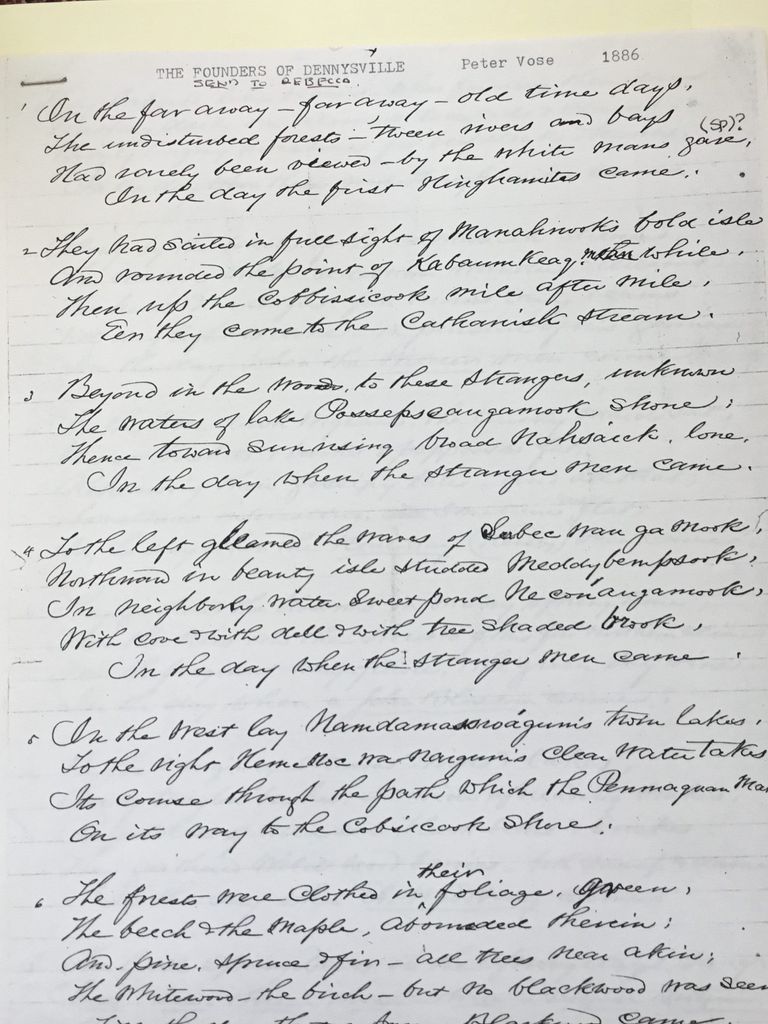 THE FOUNDERS OF DENNYSVILLE Peter Vose 1886
SEND TO REBECCA
1 On the far away - far away - old time days,
The undisturbed forests - 'tween rivers and bays
(SP)?
Had rarely been viewed - by the white mans gaze,
In the day the first Hinghamites came.
2 They had sailed in full sight of Manahnook's bold isle
And rounded the point of Kabaumkeag while,
Then up the Cobbissicook mile after mile,
Een they came to the Cathanisk stream.
3 Beyond in the woods, to these strangers, unknown
The waters of lake Possepscaugamook shone;
Thence toward sunrising broad Nahsaick, lone,
In the day when the stranger men came.
4 To the left gleamed the waves of Subec wau ga mook,
Northward in beauty isle studded Meddybempsook,
In neighborly water Sweet pond Ne conaugamook,
With cove & with dell & with tree shaded brook,
In the day when the stranger men came.
5 In the west lay Namdamasswagum's twin lakes,
To the right clear water takes
Its course through the path which the Penmaquan
On its way to the Cobsicook shore.
their
6 The forests were clothed in foliage, green;
The beech & the maple, abounded therein;
And pine, spruce & fir - all trees near akin;
The whitewood - the birch - but no blackwood was seen